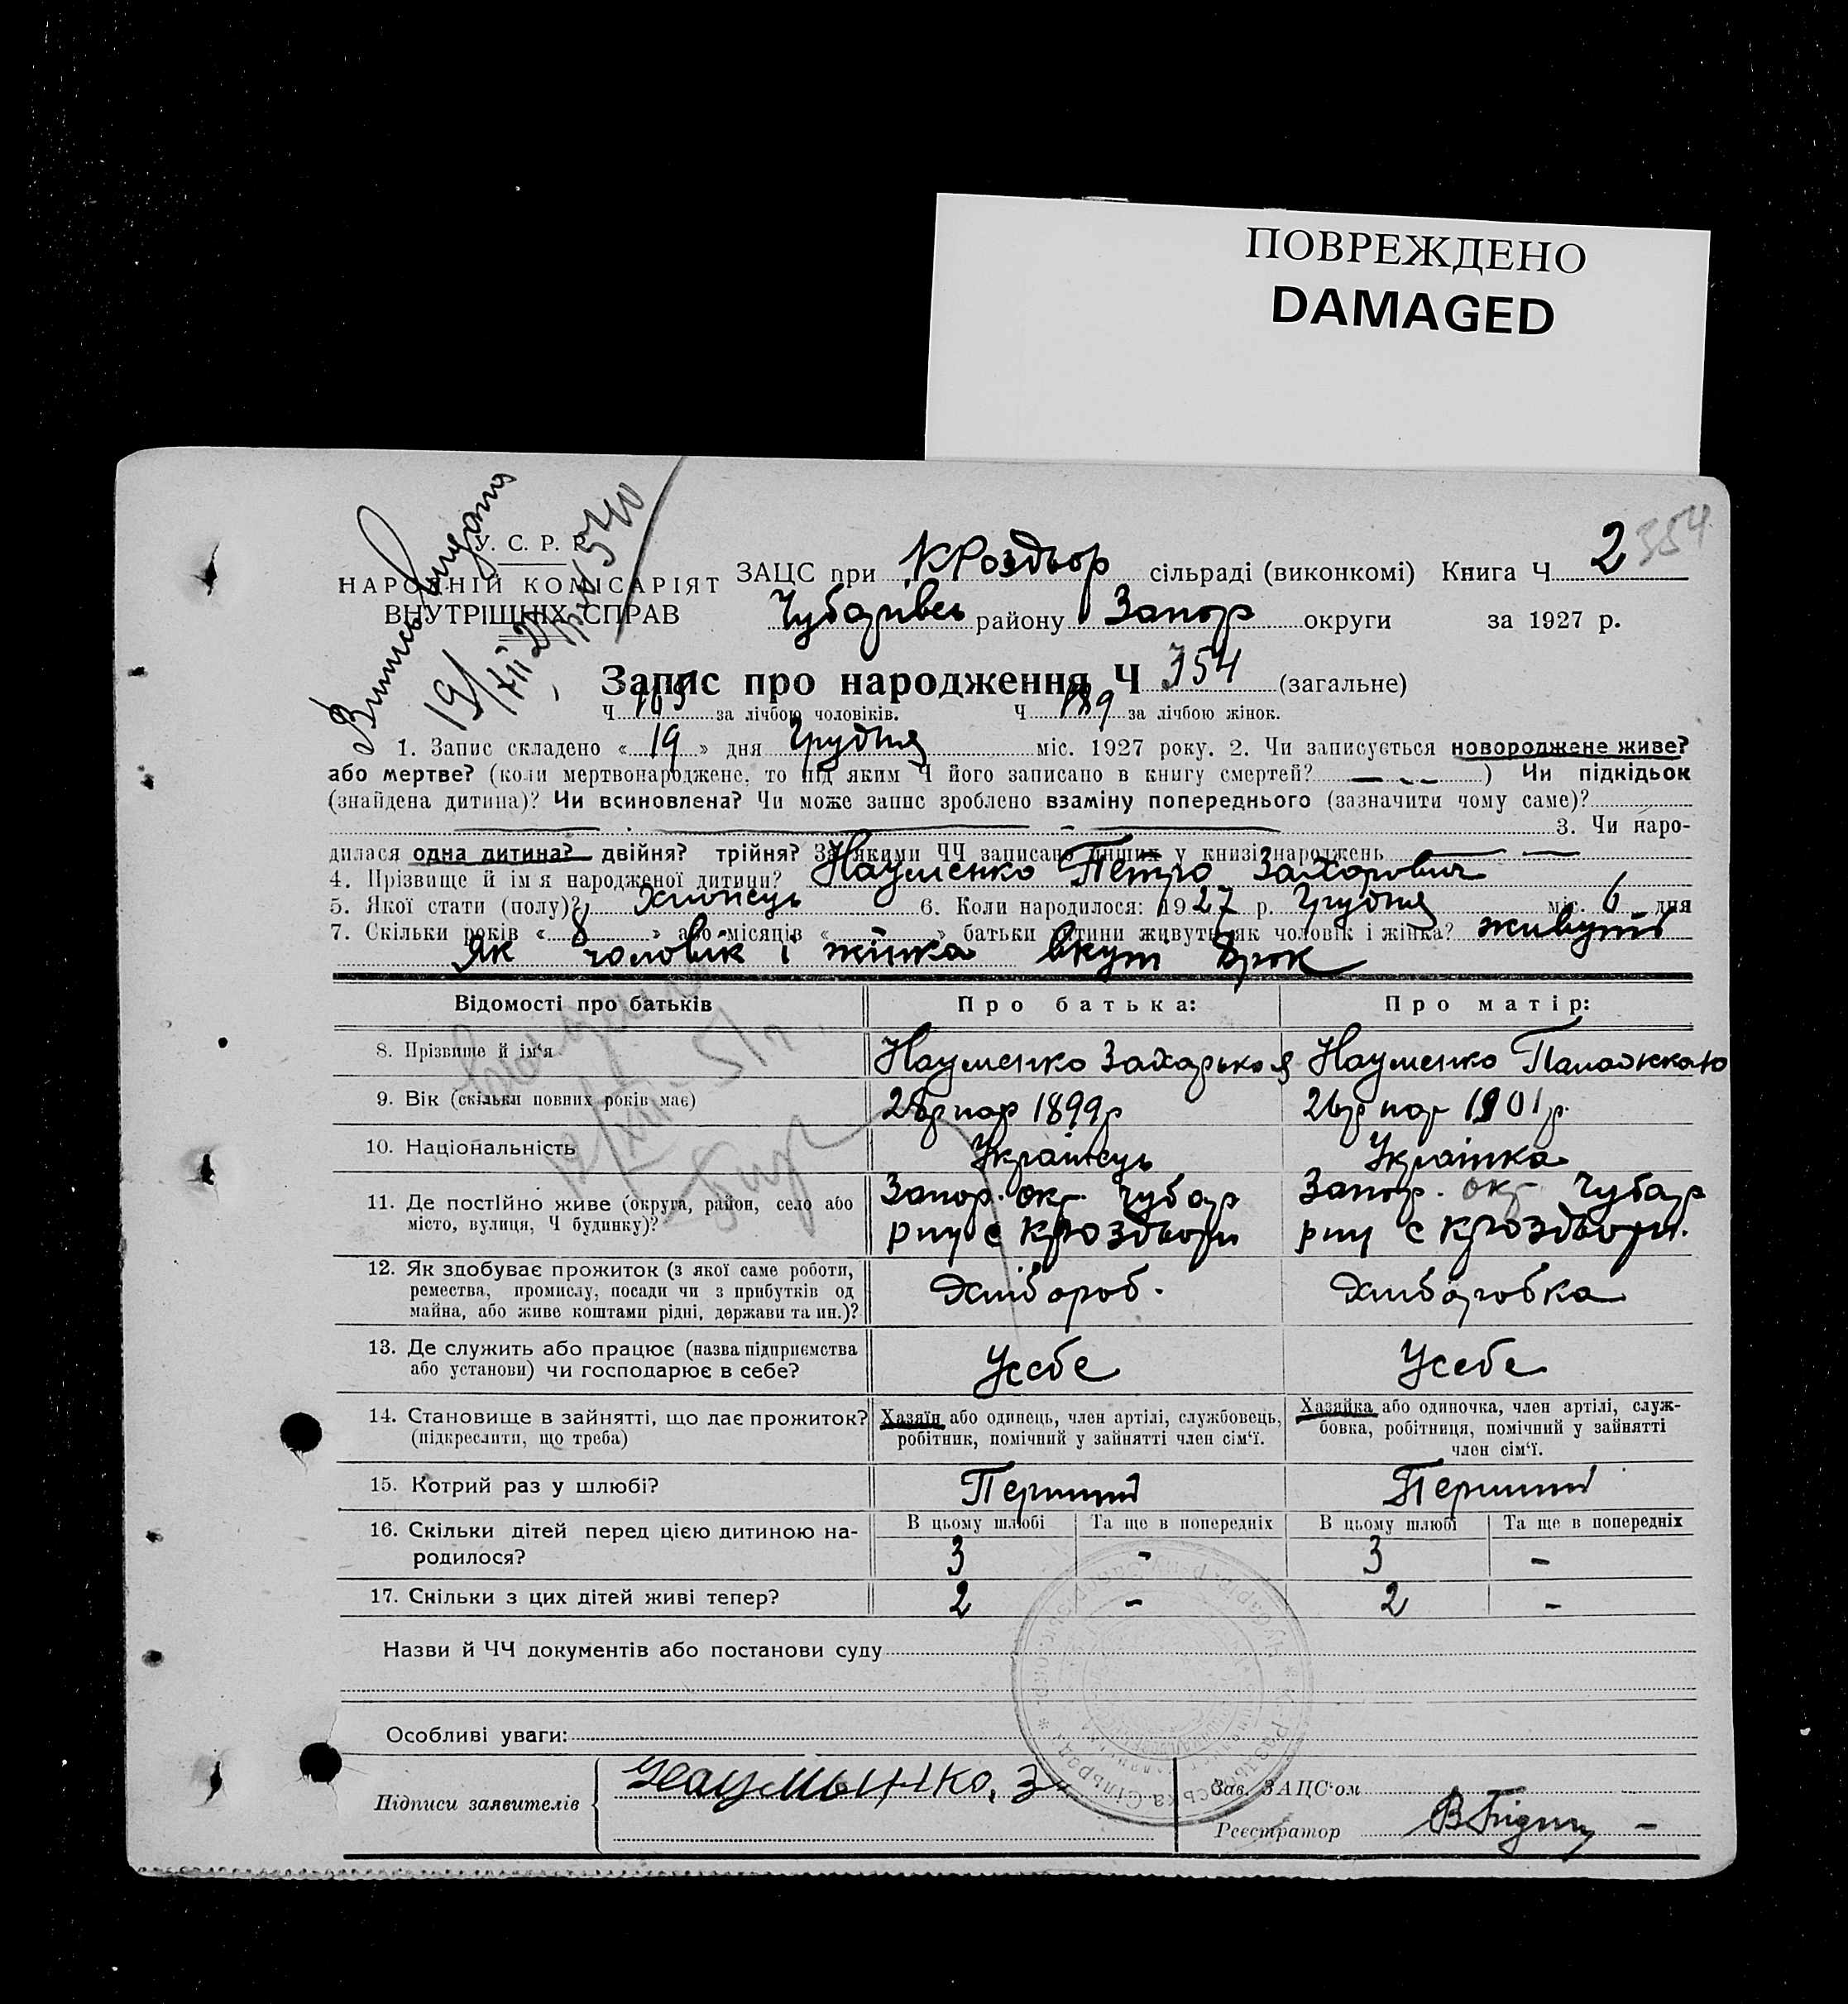 ПОВРЕЖДЕНО
DAMAGED
У. С. Р. Р.
НАРОДНІЙ КОМІСАРІЯТ
ВНУТРІШНІХ СПРАВ
19/XII 27
540
ЗАЦС при КРоздор сільраді (виконкомі) Книга Ч 2 354
Чубарівсь району Запор округи за 1927 р.
Запис про народження Ч 354 (загальне)
Ч 165 за лічбою чоловіків. Ч 189 за лічбою жінок.
1. Запис складено « 19 » дня Грудня міс. 1927 року. 2. Чи записується новороджене живе?
або мертве? (коли мертвонароджене, то під яким Ч його записано в книгу смертей? — - - ) Чи підкідьок
(знайдена дитина)? Чи всиновлена? Чи може запис зроблено взаміну попереднього (зазначити чому саме)?
3. Чи наро-
дилася одна дитина? двійня? трійня? За якими ЧЧ записано инших у книзі народжень — —
4. Прізвище й ім'я народженої дитини? Науменко Петро Захорович
5. Якої стати (полу)? Хлопець 6. Коли народилося: 1927 р. Грудня міс. 6 дня
7. Скільки років « 8 » або місяців « » батьки дитини живуть як чоловік і жінка? живуть
Як чоловік і жінка вкупі 8рок
Відомості про батьків Про батька: Про матір:
8. Прізвище й ім'я Науменко Захарько Науменко Палажкаю
9. Вік (скільки повних років має) 28р нар 1899р 26р нар 1901р.
10. Національність Українець Українка
11. Де постійно живе (округа, район, село або місто, вулиця, Ч будинку)? Запор. окр. Чубар Запор. окр Чубар
рну с Кроздори рну с Кроздори.
12. Як здобуває прожиток (з якої саме роботи, Хлібороб. Хліборобка
ремества, промислу, посади чи з прибутків од
майна, або живе коштами рідні, держави та ин.)?
13. Де служить або працює (назва підприємства Усебе Усебе
або установи) чи господарює в себе?
14. Становище в зайнятті, що дає прожиток? Хазяїн або одинець, член артілі, службовець, Хазяйка або одиночка, член артілі, служ-
(підкреслити, що треба) робітник, помічний у зайнятті член сім'ї. бовка, робітниця, помічний у зайнятті
член сім'ї.
15. Котрий раз у шлюбі? Перший Перший
16. Скільки дітей перед цією дитиною на- В цьому шлюбі Та ще в попередніх В цьому шлюбі Та ще в попередніх
родилося? 3 - 3 -
17. Скільки з цих дітей живі тепер? 2 - 2 -
Назви й ЧЧ документів або постанови суду
Особливі уваги:
Підписи заявителів Наумынко, З
Зав. ЗАЦС'ом
Реєстратор